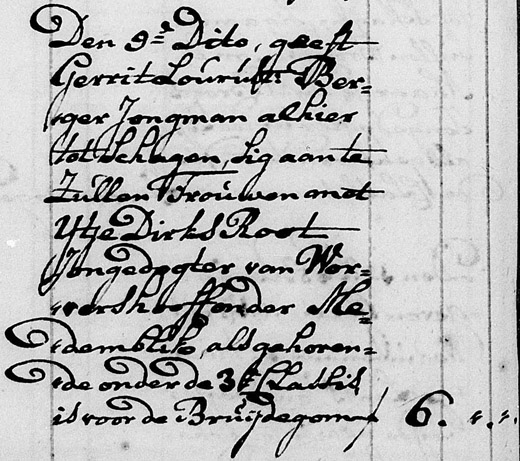 Den 9e Dito, geeft
Gerrit Louritsz Ber=
=ger Jongman alhier
tot Schagen, sig aan te
Zullen Trouwen met
Ytje Dirks Root
Jongedogter van Wer=
=vershooff onder Me=
=demblik, als gehoren=
=de onder de 3e Classis
is voor de Bruijdegom 6.".".